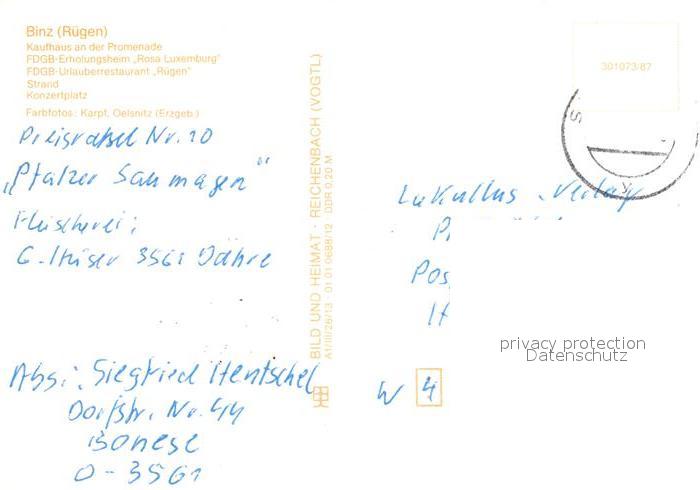 Binz (Rügen)
Kaufhaus an der Promenade
FDGB-Erholungsheim „Rosa Luxemburg"
FDGB-Urlauberrestaurant „Rügen"
Strand
Konzertplatz
Farbfotos: Karpf, Oelsnitz (Erzgeb.)
Preisrätsel Nr. 10
„Pfalzer Saumagen"
Fleischerei:
G. Hüser 3561 Dähre
Abs.: Siegfried Hentschel
Dorfstr. Nr. 44
Bonese
O-3561
BILD UND HEIMAT · REICHENBACH (VOGTL)
A1/III/26/13 · 01 01 0688/12 DDR 0,20 M
301073/87
Lukullus-Verlag
Pos
W 4
privacy protection
Datenschutz